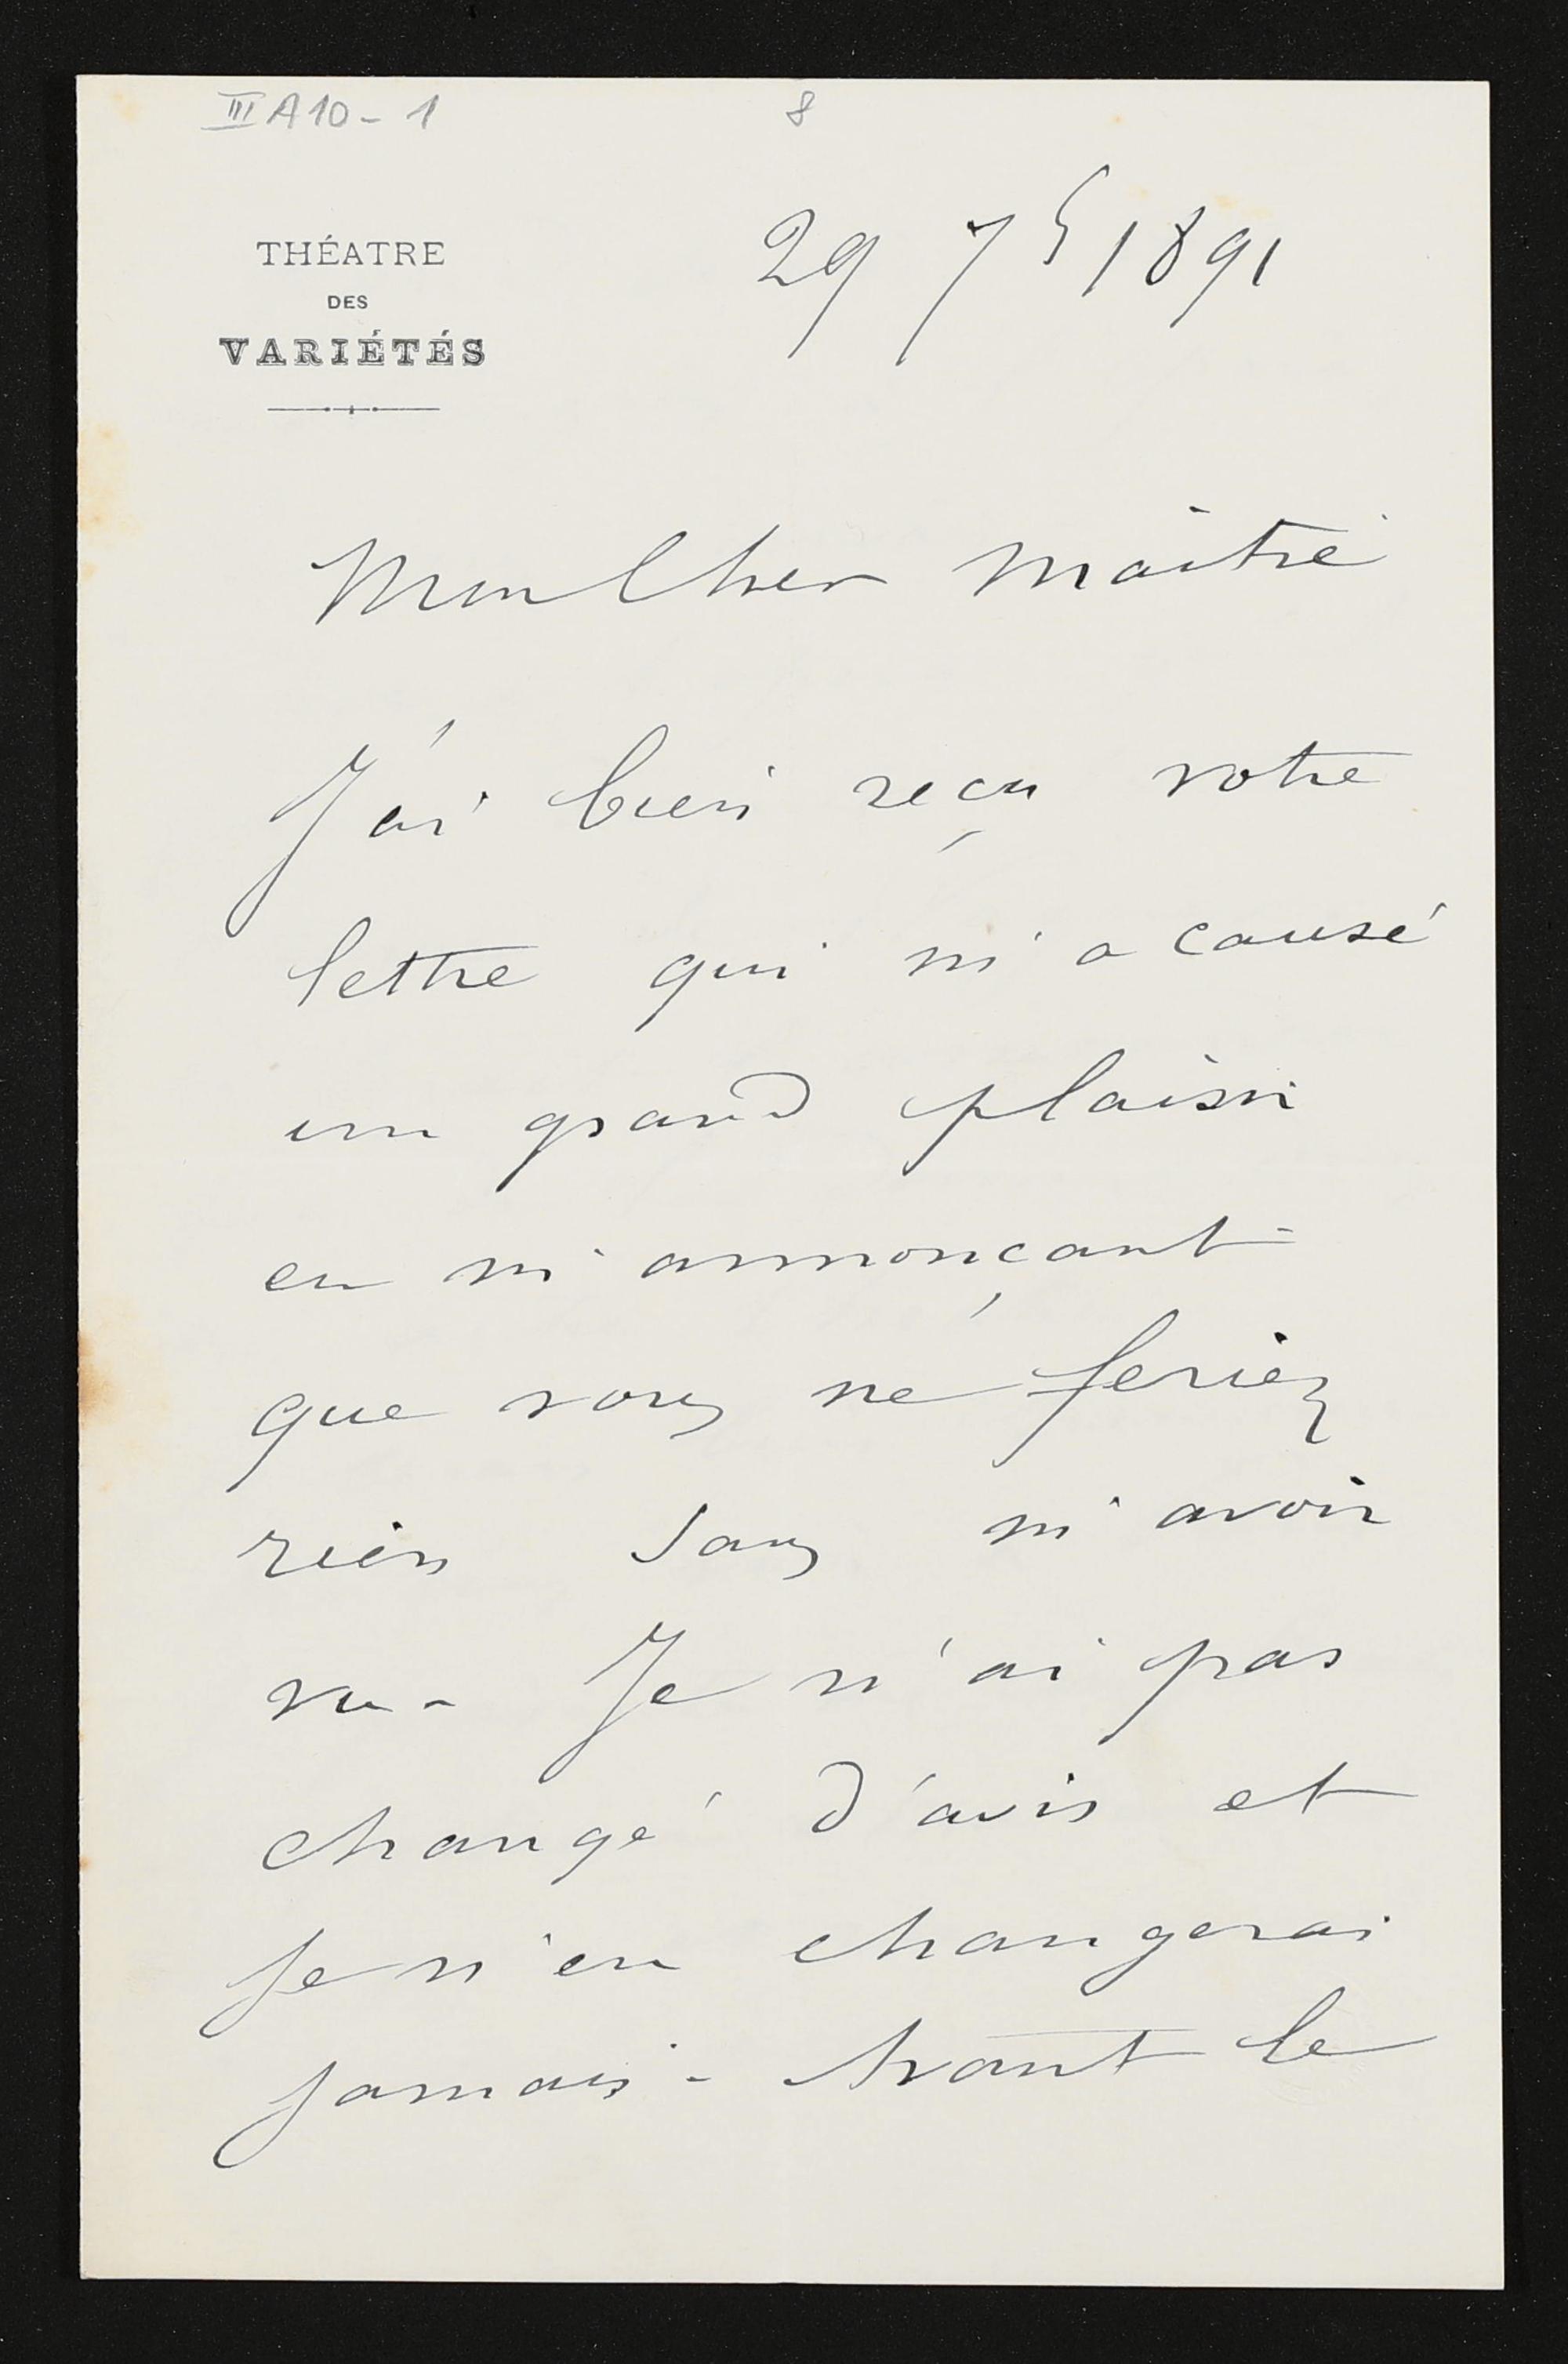 III A10 - 1
8
THÉATRE
DES
VARIÉTÉS
29 7b 1891
Mon Cher Maître
J'ai bien reçu votre
lettre qui m'a causé
un grand plaisir
en m'annonçant
que vous ne feriez
rien sans m'avoir
vu - Je n'ai pas
changé d'avis et
je n'en changerai
jamais - Avant le